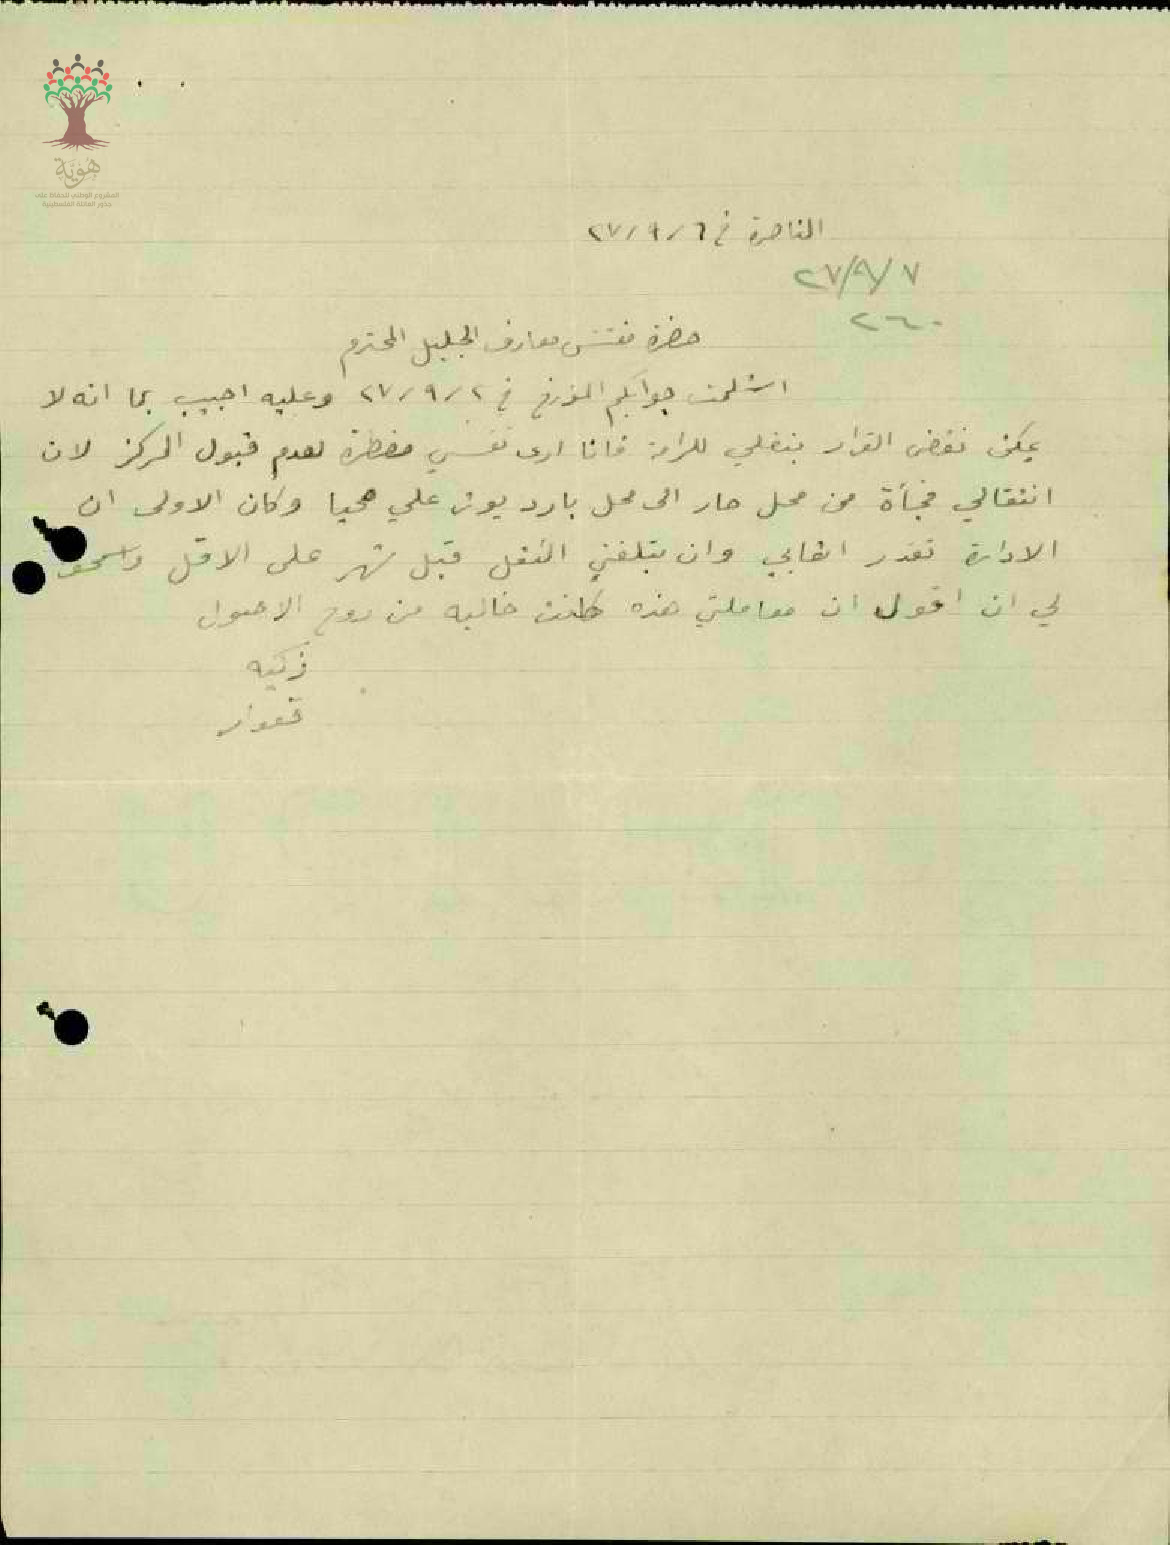 هوية
المشروع الوطني للحفاظ على
جذور العائلة الفلسطينية
الناصرة في ٦ / ٩ / ٢٧
٢٧/٩/٧
حضرة مفتش معارف الجليل المحترم
استلمت جوابكم المؤرخ في ٢ / ٩ / ٢٧ وعليه اجيب بما انه لا
يمكن نقض القرار بنقلي للرامة فانا ارى نفسي مضطرة لعدم قبول المركز لان
انتقالي فجأة من محل حار الى محل بارد يؤثر علي صحيا وكان الاولى ان
الادارة تقدر اتعابي وان تبلغني النقل قبل شهر على الاقل واسمحوا
لي ان اقول ان معاملتي هذه كانت خاليه من روح الاصول
زكيه
قعوار